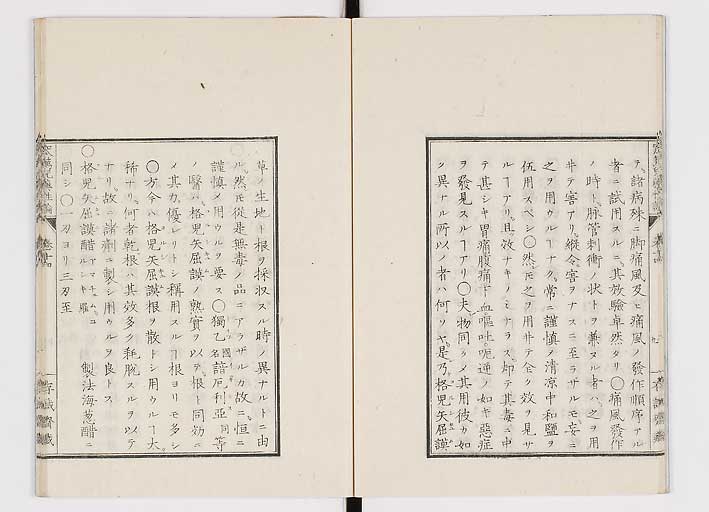 ヲ、諸病殊ニ脚痛風及ヒ痛風ノ發作順序アル
者ニ試用スルニ、其效驗卓然タリ〇痛風發作
ノ時ト、脈管刺衝ノ状トヲ兼ヌル者ハ、之ヲ用
井テ害アリ、縱令害ヲナスニ至ラザルモ、妄ニ
之ヲ用ウルヿナク、常ニ謹慎ノ清涼中和鹽ヲ
伍用スベシ〇然𪜈之ヲ用井テ全ク效ヲ見ザ
ルヿアリ、且效ナキノミナラス、却テ其毒ニ中
テ甚シキ胃痛腹痛下血嘔吐呃逆ノ如キ惡症
ヲ發見スルヿアリ〇夫物同フメ其用彼カ如
ク異ナル所以ノ者ハ何ソヤ、是乃格兒矢屈謨
草ノ生地ト根ヲ採收スル時ノ異ナルトニ由
ル、然𪜈從是無毒ノ品ニアラザルカ故ニ、恒ニ
謹慎メ用ウルヲ要ス〇獨乙國名諳厄利亞同等
ノ醫ハ、格兒矢屈謨ノ熟實ヲ以テ、根ト同効ニ
メ其力優レリトシ稱用スルヿ根ヨリモ多シ
〇方今ハ格兒矢屈謨根ヲ散トシ用ウルヿ大
稀ナリ、何者乾根ハ其效多ク耗脫スルヲ以テ
ナリ、故ニ諸劑ニ製シ用ウルヲ良トス
〇格兒矢屈謨醋 製法海葱醋ニ
同シ〇一刃ヨリ三刃至